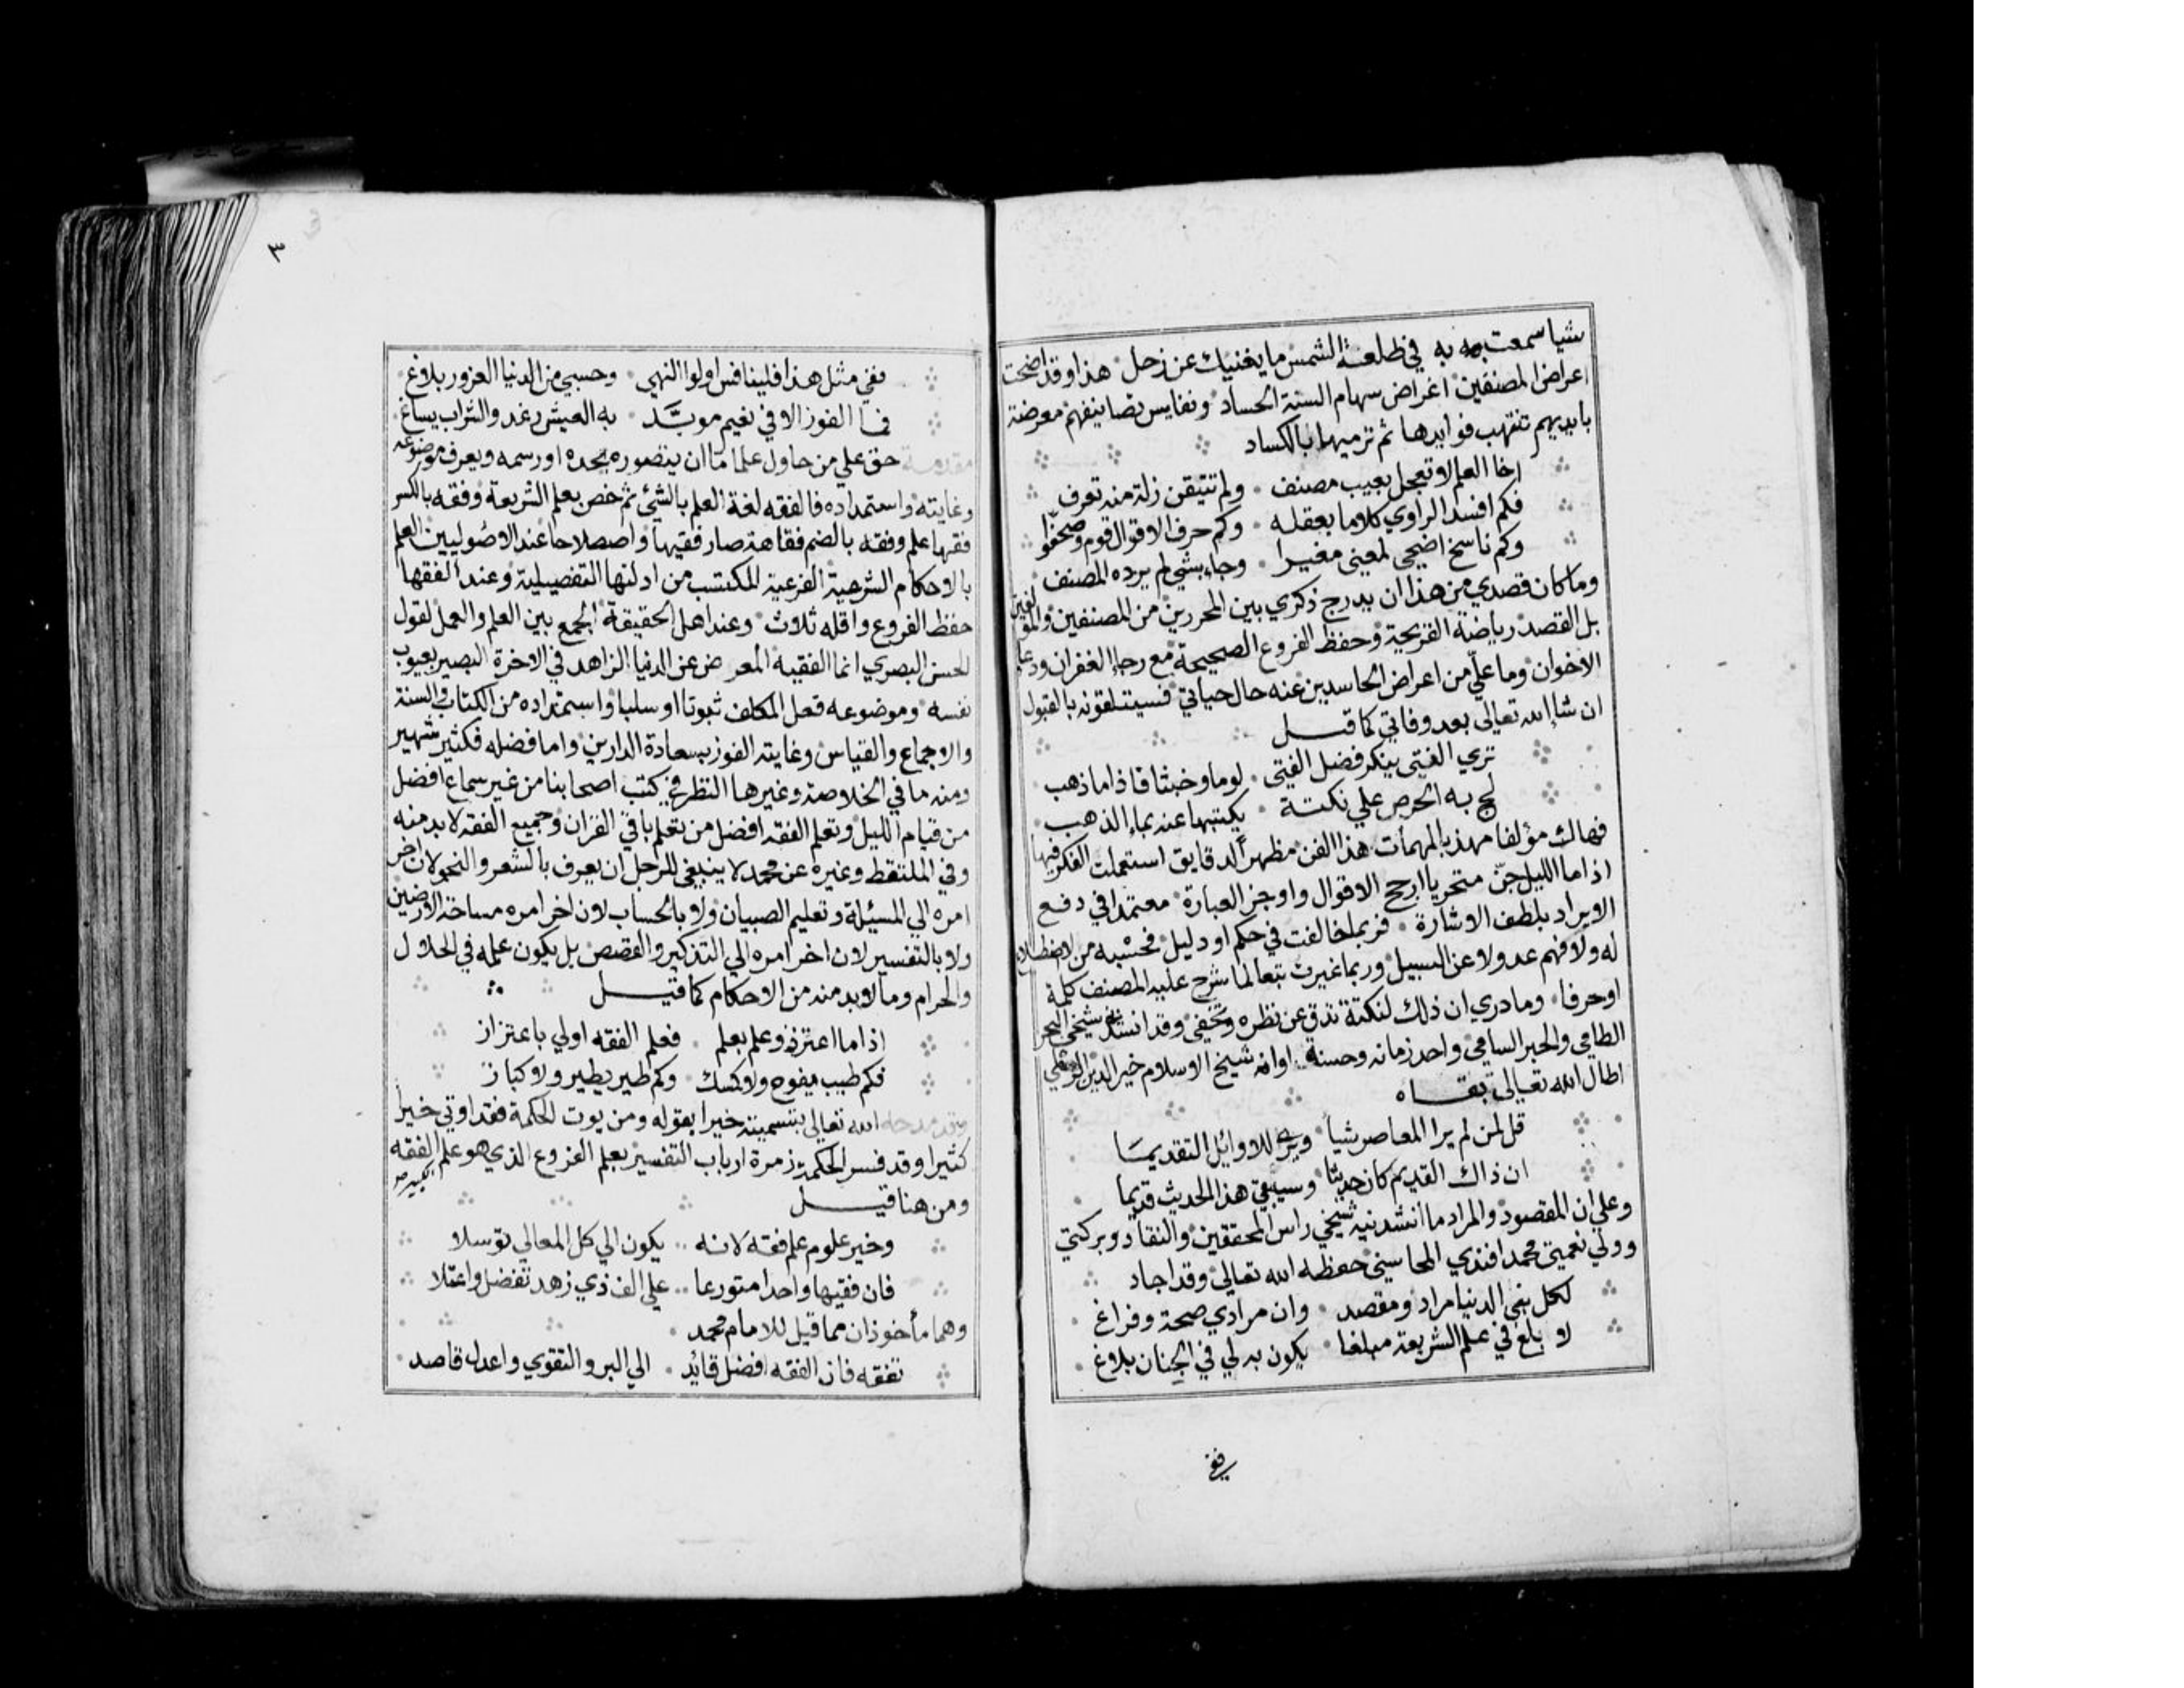 شيا سمعت به في طلعة الشمس ما يغنيك عن زحل هذا وقد اضحت
اعراض المصنفين اغراض سهام السنة الحساد ونفايس تصانيفهم معرضة
بايديهم تنتهب فوايدها ثم ترميها بالكساد
اخا العلم لا تعجل بعيب مصنف ولم تتيقن زلة منه تعرف
فكم افسد الراوي كلاما بعقله وكم حرف الاقوال قوم وصحفوا
وكم ناسخ اضحي لمعني مغيرا وجاء بشي لم يرده المصنف
وما كان قصدي من هذا ان يدرج ذكري بين المحررين من المصنفين والمولفين
بل القصد رياضة القريحة وحفظ الفروع الصحيحة مع رجا الغفران ودعا
الاخوان وما علي من اعراض الحاسدين عنه حال حياتي فسيتلقونه بالقبول
ان شا الله تعالى بعد وفاتي كما قيل
تري الفتى ينكر فضل الفتى لوما وخبثا فاذا ما ذهب
لج به الحرص علي نكتة يكتبها عنه بماء الذهب
فهاك مؤلفا مهذبا لمهمات هذا الفن مظهرا لدقايق استعملت الفكر فيها
اذا ما الليل جن متحريا ارجح الاقوال واوجز العبارة معتمدا في دفع
الايراد بلطف الاشارة فربما خالفت في حكم او دليل فحسبه من لا اطلاع
له ولا فهم عدولا عن السبيل وربما غيرت تبعا لما شرح عليه المصنف كلمة
او حرفا وما دري ان ذلك لنكتة تدق عن نظره وتخفى وقد انشدني شيخي البحر
الطامي والحبر السامي واحد زمانه وحسنة اوانه شيخ الاسلام خير الدين الرملي
اطال الله تعالى بقاه
قل لمن لم ير المعاصر شيا ويرى للاوائل التقديما
ان ذاك القديم كان حديثا وسيبقى هذا الحديث قديما
وعلي ان المقصود والمراد ما انشدنيه شيخي راس المحققين والنقاد وبركتي
وولي نعمتي محمد افندي المحاسني حفظه الله تعالى وقد اجاد
لكل بني الدنيا مراد ومقصد وان مرادي صحة وفراغ
لا بلغ في علم الشريعة مبلغا يكون به لي في الجنان بلاغ
ففي
٣
ففي مثل هذا فلينافس اولوا النهي وحسبي من الدنيا الغرور بلاغ
فما الفوز الا في نعيم موبد به العيش رغد والشراب يساغ
مقدمة حق علي من حاول علما ما ان يتصوره بحده او رسمه ويعرف موضوعه
وغايته واستمداده فالفقه لغة العلم بالشئ ثم خص بعلم الشريعة وفقه بالكسر
فقها علم وفقه بالضم فقاهة صار فقيها واصطلاحا عند الاصوليين العلم
بالاحكام الشرعية الفرعية المكتسب من ادلتها التفصيلية وعند الفقها
حفظ الفروع واقله ثلاث وعند اهل الحقيقة الجمع بين العلم والعمل لقول
الحسن البصري انما الفقيه المعرض عن الدنيا الزاهد في الاخرة البصير بعيوب
نفسه وموضوعه فعل المكلف ثبوتا او سلبا واستمداده من الكتاب والسنة
والاجماع والقياس وغايته الفوز بسعادة الدارين واما فضله فكثير شهير
ومنه ما في الخلاصة وغيرها النظر في كتب اصحابنا من غير سماع افضل
من قيام الليل وتعلم الفقه افضل من تعلم باقي القران وجميع الفقه لا بد منه
وفي الملتقط وغيره عن محمد لا ينبغي للرجل ان يعرف بالشعر والنحو لان اخر
امره الي المسئلة وتعليم الصبيان ولا بالحساب لان اخر امره مساحة الارضين
ولا بالتفسير لان اخر امره الي التذكير والقصص بل يكون علمه في الحلال
والحرام وما لا بد منه من الاحكام كما قيل
اذا ما اعتز ذو علم بعلم فعلم الفقه اولي باعتزاز
فكم طيب يفوح ولا كمسك وكم طير يطير ولا كباز
وقد مدحه الله تعالى بتسميته خيرا بقوله ومن يوت الحكمة فقد اوتي خيرا
كثيرا وقد فسر الحكمة زمرة ارباب التفسير بعلم الفروع الذي هو علم الفقه
ومن هنا قيل
وخير علوم علم فقه لانه يكون الي كل المعالي توسلا
فان فقيها واحدا متورعا علي الف ذي زهد تفضل واعتلا
وهما مأخوذان مما قيل للامام محمد
تفقه فان الفقه افضل قائد الي البر والتقوي واعدل قاصد